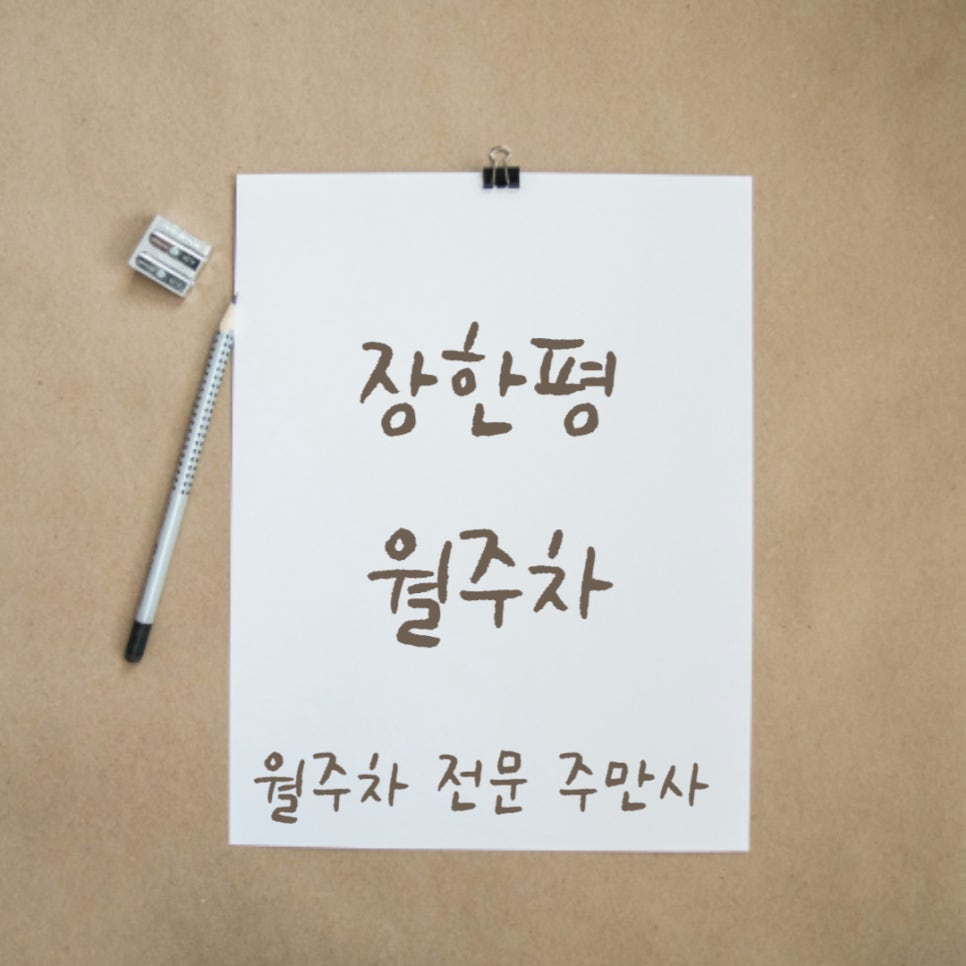 장한평
월주차
월주차 전문 주만사